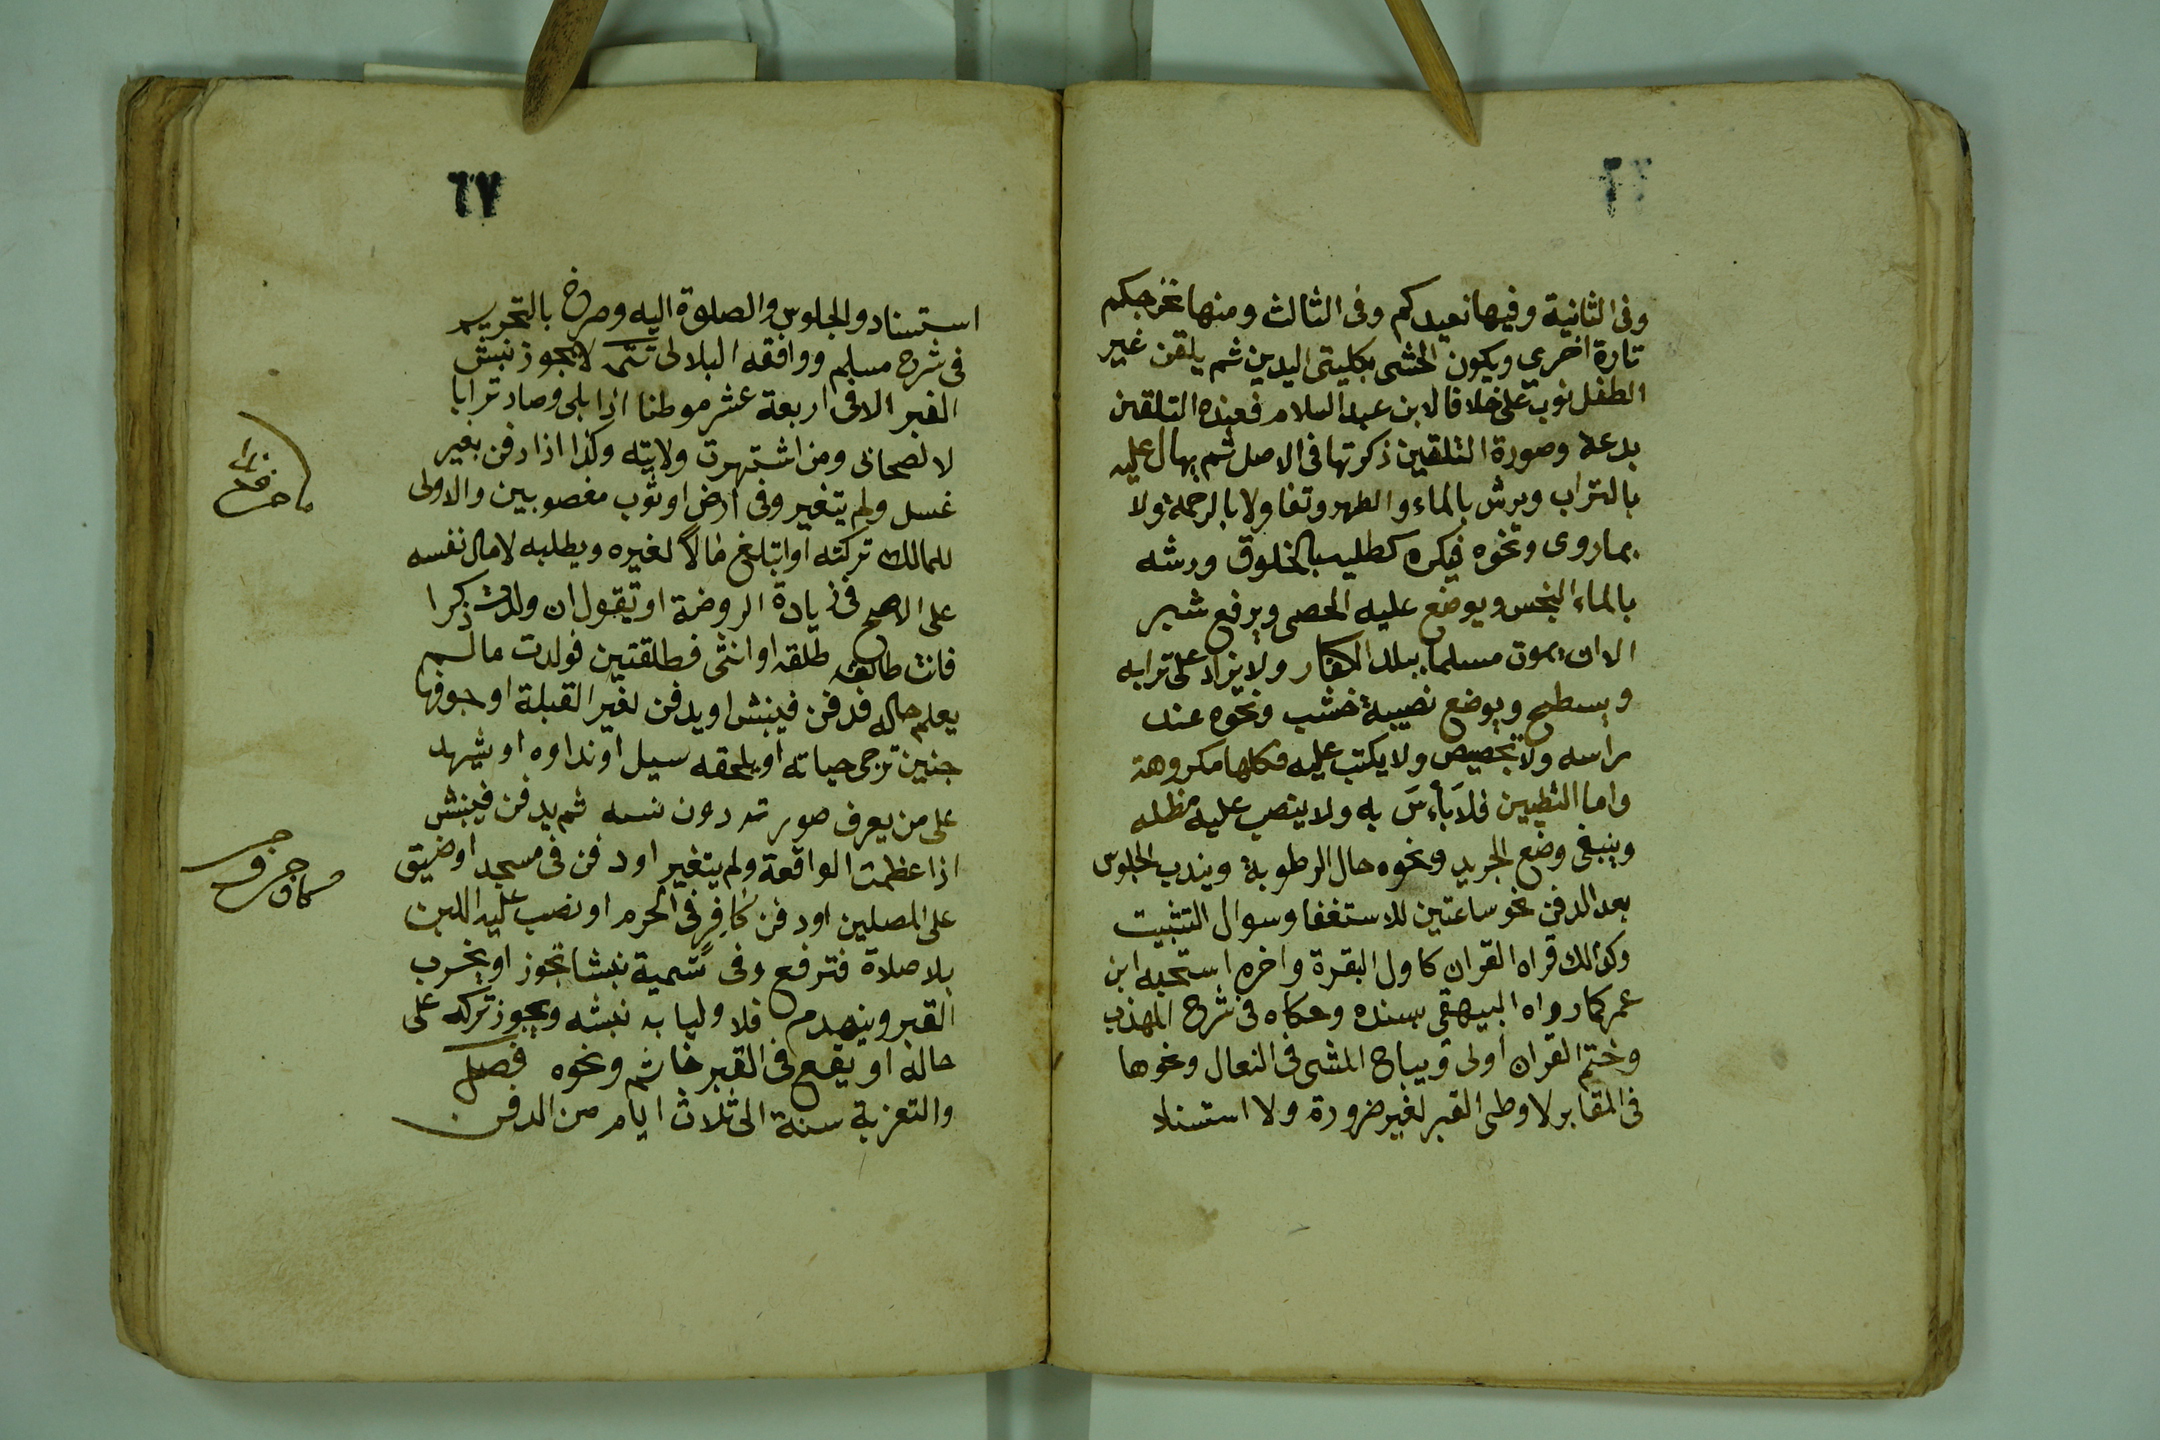 وفى الثانية وفيها نعيدكم وفى الثالث ومنها نخرجكم
تارة اخرى ويكون الحثى بكليتى اليدين ثم يلقن غير
الطفل نوب على خلافا لابن عبد السلام فعنده التلقين
بدعة وصورة التلقين ذكرتها فى الاصل ثم يهال عليه
بالتراب ويرش بالماء والطهر وتفاولا بالرحمة ولا
بماروى ونحوه فيكره كطليه بالخلوق ورشه
بالماء النجس ويوضع عليه الحصى ويرفع شبر
الا ان يموت مسلما ببلد الكفار ولا يزاد على ترابه
ويسطح ويوضع نصيبة خشب ونحوه عند
راسه ولا تجصيص ولا يكتب عليه فكلها مكروهة
واما التطيين فلا بأس به ولا ينصب عليه مظله
وينبغى وضع الجريد ونحوه حال الرطوبة ويندب الجلوس
بعد الدفن نحو ساعتين للاستغفا وسوال التثبيت
وكذالك قراه القران كاول البقرة واخره استحبه ابن
عمر كما رواه البيهقى بسنده وحكاه فى شرح المهذب
وختم القران اولى ويباح المشى فى النعال ونحوها
فى المقابر لا وطى القبر لغير ضرورة ولا استناد
٦٧
استسناد والجلوس والصلوة اليه وصرح بالتحريم
فى شرح مسلم ووافقه البلالى تتمه لا يجوز نبش
القبر الا فى اربعة عشر موطنا اذا بلى وصار ترابا
لا لصحابى ومن اشتهرت ولايته وكذا اذا دفن بغير
غسل ولم يتغير وفى ارض او ثوب مغصوبين والاولى
للمالك تركته او ابتلاع مالا لغيره ويطلبه لا مال نفسه
على الاصح فى زيادة الروضة او تقول ان ولدت ذكرا
فانت طالق طلقه او انثى فطلقتين فولدت ما لم
يعلم حاله فدفن فينبش او يدفن لغير القبلة او جوفها
جنين ترجى حياته او يلحقه سيل او نداوه او يشهد
على من يعرف صورته دون نسبه ثم يدفن فينبش
اذا عظمت الواقعة ولم يتغير او دفن فى مسجد او ضيق
على المصلين او دفن كافر فى الحرم او نصب عليه اللبن
بلا صلاة فترفع وفى تسمية نبشا تجوز او يخرب
القبر وينهدم فلاوليا به نبشه ويجوز تركه على
حاله او يقع فى القبر خاتم ونحوه فصل
والتعزية سنة الى ثلاث ايام من الدفن